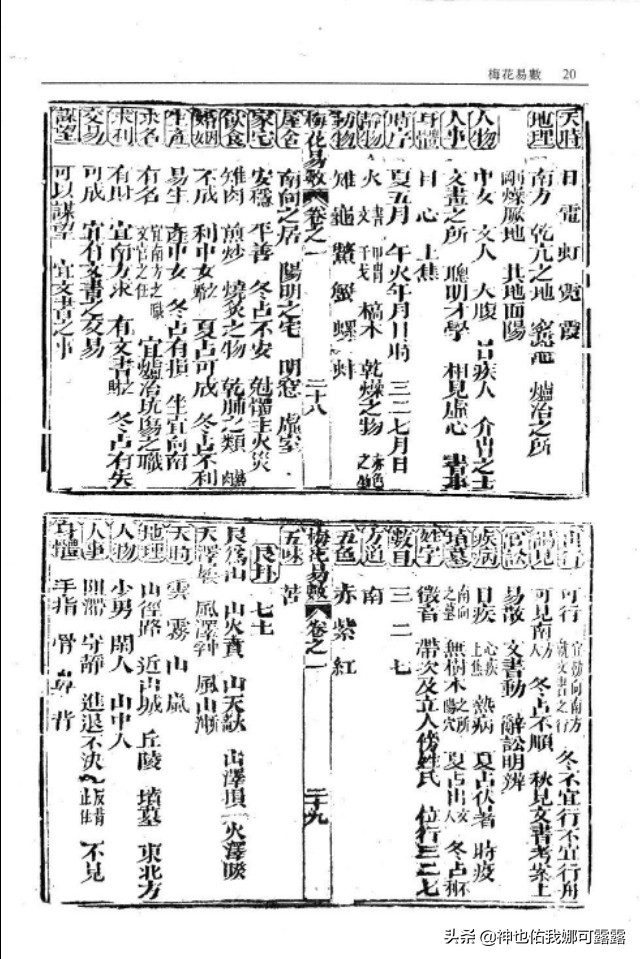 梅花易數 20
天時 日 電 虹 霓 霞
地理 南方 乾亢之地 窰 爐冶之所
剛燥厥地 其地面陽
人物 中女 文人 大腹 目疾人 介冑之士
人事 文畫之所 聰明才學 相見虛心 書事
身體 目 心 上焦
時序 夏五月 午火年月日時 三二七月日
靜物 火 文書 甲冑干戈 槁木 乾燥之物 赤色之物
動物 雉 龜 鱉 蟹 螺 蚌
梅花易數 卷之一 二十八
屋舍 南向之居 陽明之宅 明窓 虛室
家宅 安穩 平善 冬占不安 尅體主火災
飲食 雉肉 煎炒 燒炙之物 乾脯之類 熱
婚姻 不成 利中女婚 夏占可成 冬占不利
生產 易生 產中女 冬占有損 坐宜向南
求名 有名 宜南方之職 文官之任 宜爐冶坑傷之職
求利 有財 宜南方求 有文書財 冬占有失
交易 可成 宜有文書之交易
謀望 可以謀望 宜文書之事
可行 宜動向南方 就文書之行 冬不宜行 不宜行舟
可見南方人 冬占不順 秋見文書考案士
官訟 易散 文書動 辭訟明辨
疾病 目疾 心疾 上焦 熱病 夏占伏暑 時疫
墳墓 南向之墓 無樹木之所 陽穴 夏占出文人 冬占不利
姓字 徵音 帶次及立人傍姓氏 位行三二七
數目 三 二 七
方道 南
五色 赤 紫 紅
五味 苦
梅花易數 卷之一 二十九
艮卦 七 土
艮為山 山火賁 山天畜 山澤損 火澤睽
天澤履 風澤孚 風山漸
天時 雲 霧 山 嵐
地理 山徑路 近山城 丘陵 墳墓 東北方
人物 少男 閒人 山中人
人事 阻滯 守靜 進退不決 反背 止住 不見
身體 手指 骨 鼻 背
头条 @神也佑我娜可露露